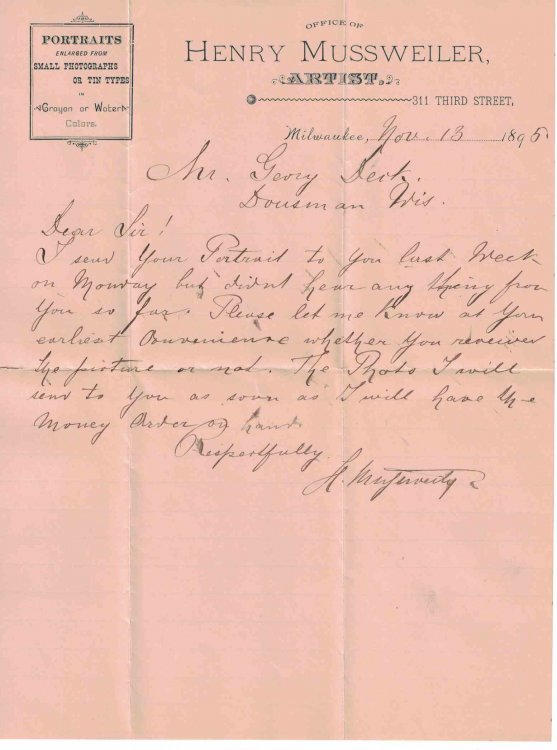 PORTRAITS
ENLARGED FROM
SMALL PHOTOGRAPHS
OR TIN TYPES
IN
Crayon or Water
Colors.
OFFICE OF
HENRY MUSSWEILER,
ARTIST,
311 THIRD STREET,
Milwaukee, Nov. 13 1895
Mr. Geory Deck.
Dousman Wis.
Dear Sir!
I send Your Portrait to You last Week
on Monday but didnt hear any thing from
You so far. Please let me know at Your
earliest Convenience whether You receiver
the picture or not. The Photo I will
send to You as soon as I will have the
Money Order on hand.
Respectfully
H. Mussweiler